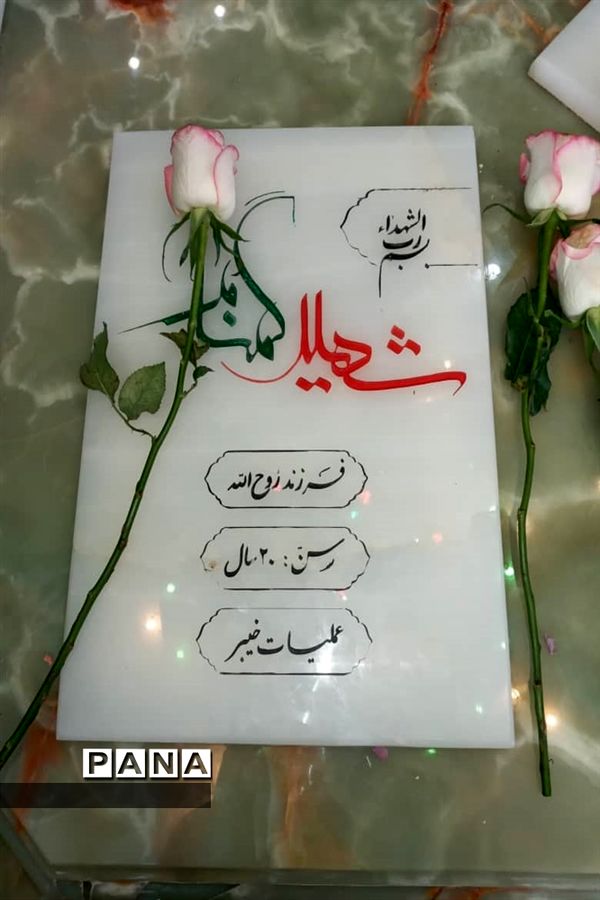 بسم رب الشهداء
شهید گمنام
فرزند روح الله
سن : ۲۰ سال
عملیات خیبر
PANA